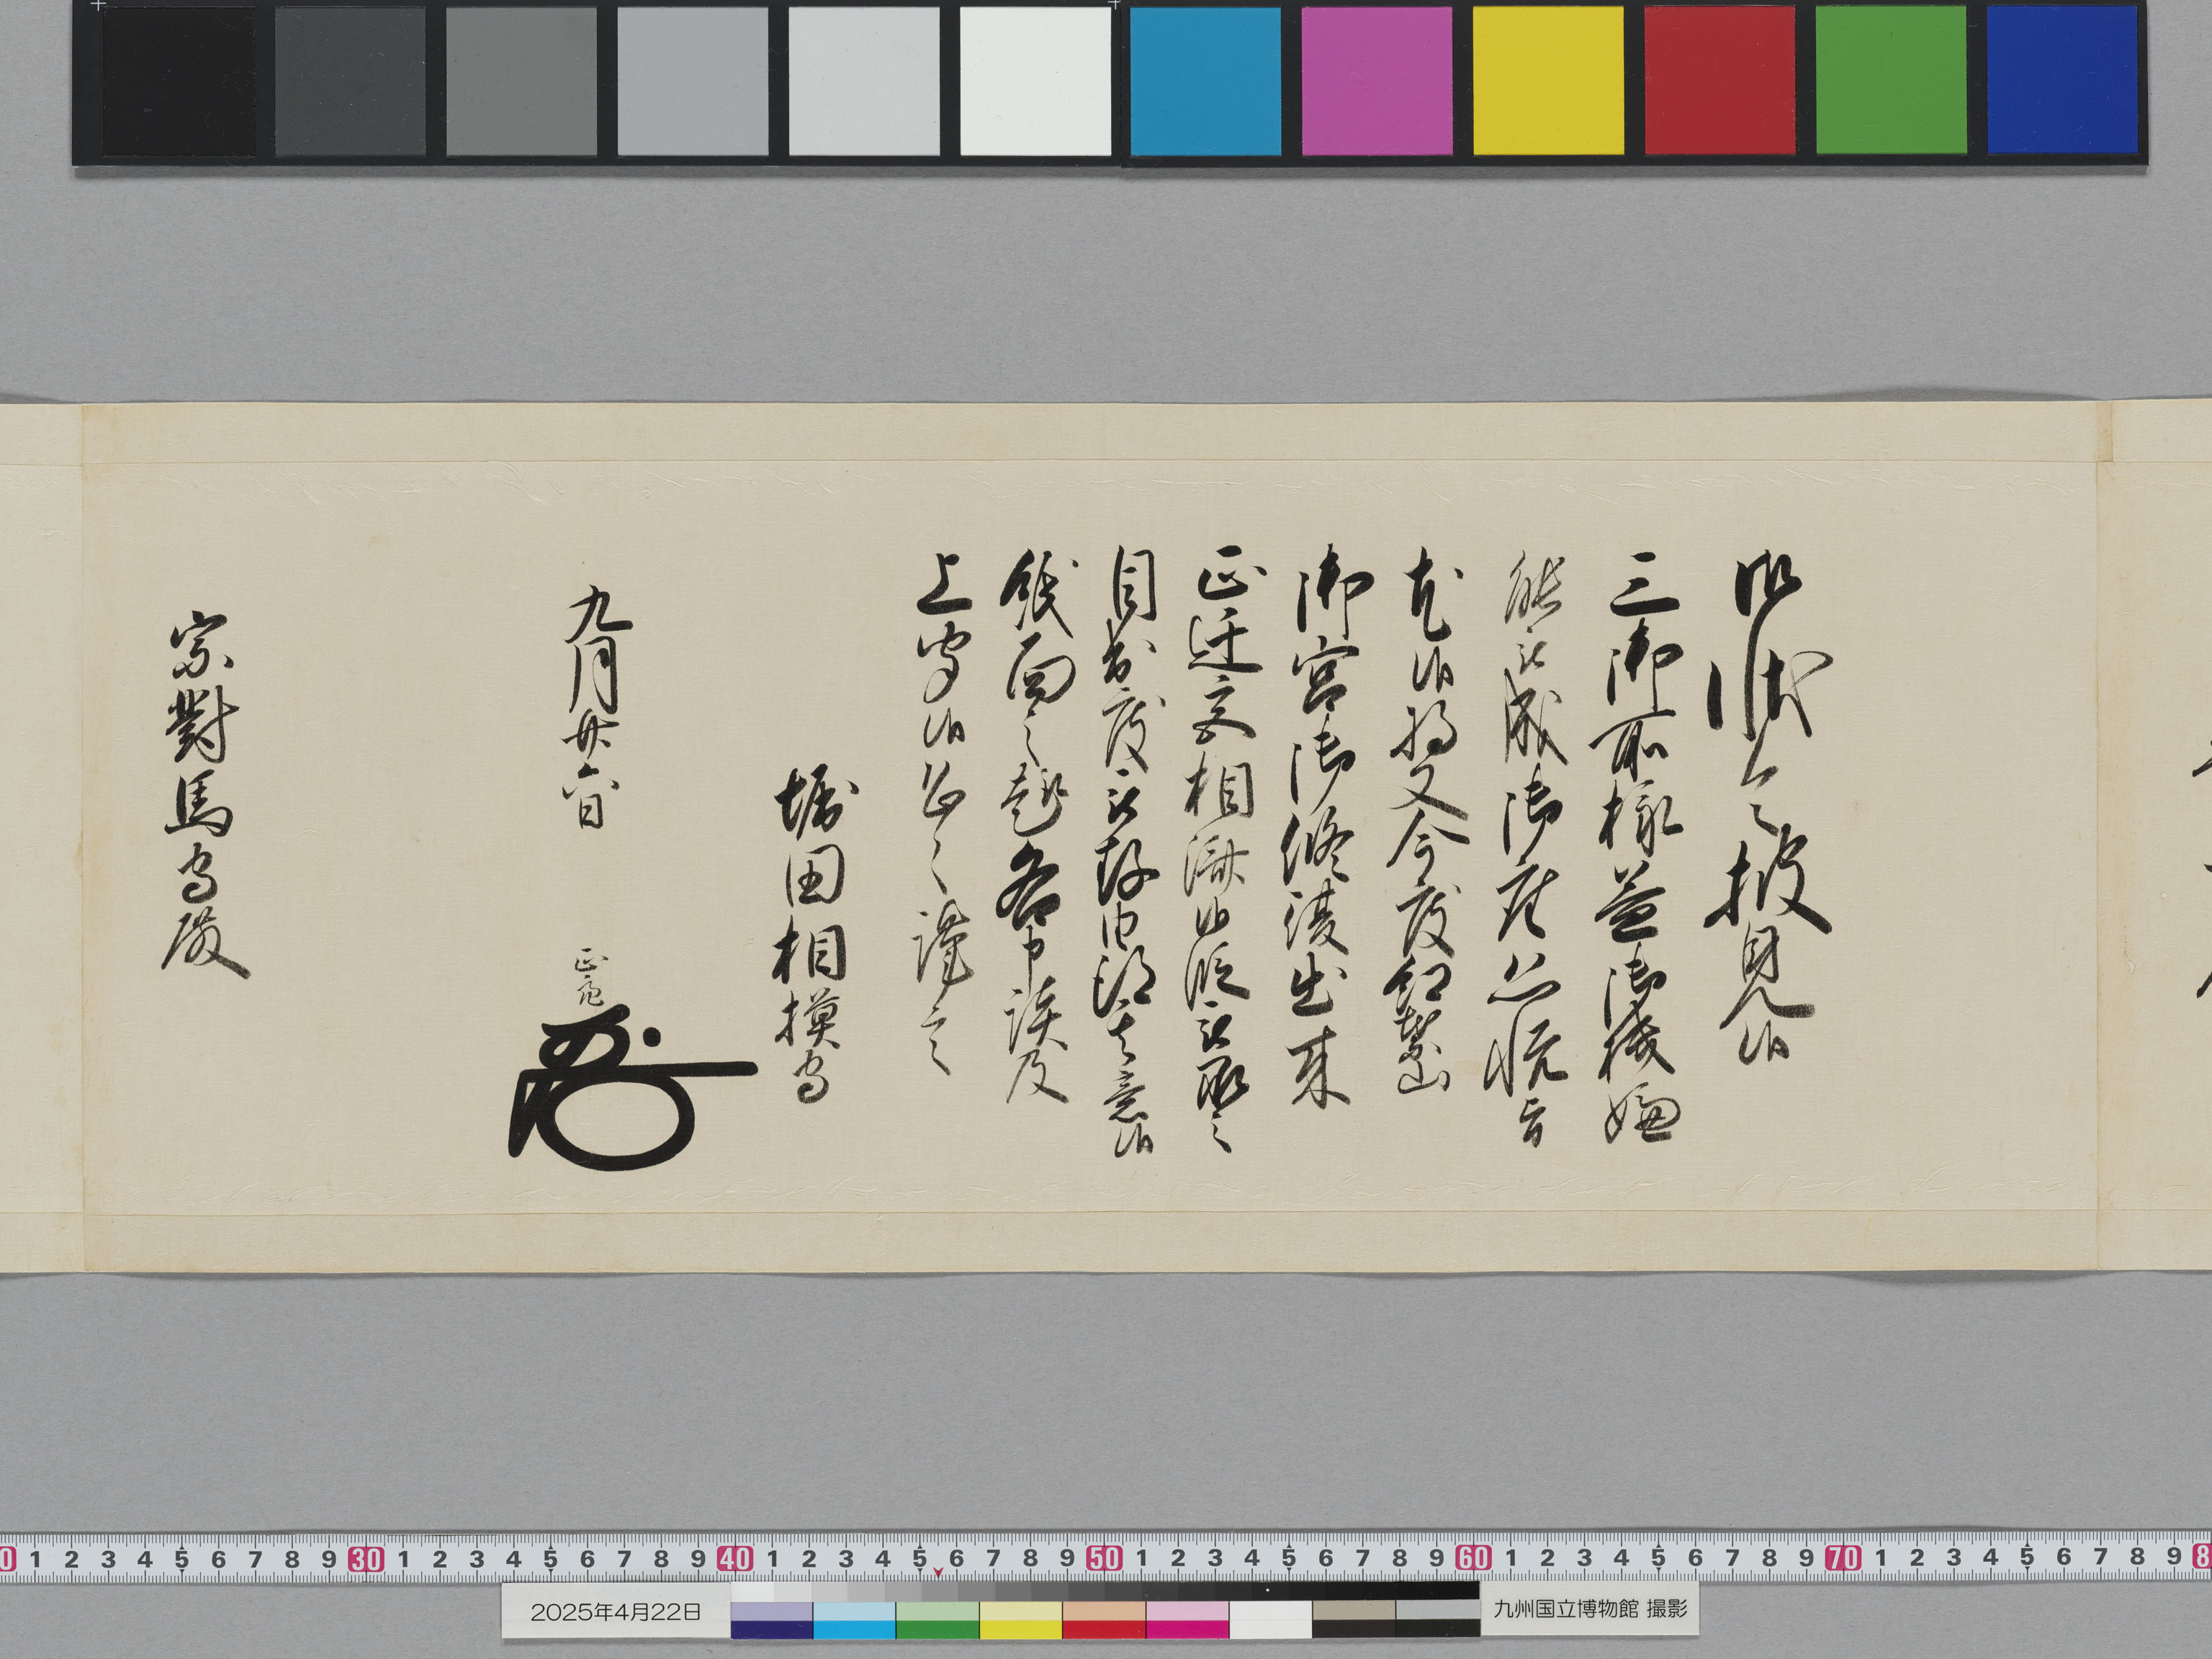 御状令披見候
三御所様益御機嫌
能被成御座恐悦旨
尤候将又今度紅葉山
御宮御修復出来
正迁宮相濟候段被承之
目出度被存由得其意候
紙面之趣各申談及
上聞候恐々謹言
堀田相模守
正亮
九月廿六日
宗對馬守殿
0 1 2 3 4 5 6 7 8 9 30 1 2 3 4 5 6 7 8 9 40 1 2 3 4 5 6 7 8 9 50 1 2 3 4 5 6 7 8 9 60 1 2 3 4 5 6 7 8 9 70 1 2 3 4 5 6 7 8 9 8
2025年4月22日
九州国立博物館 撮影